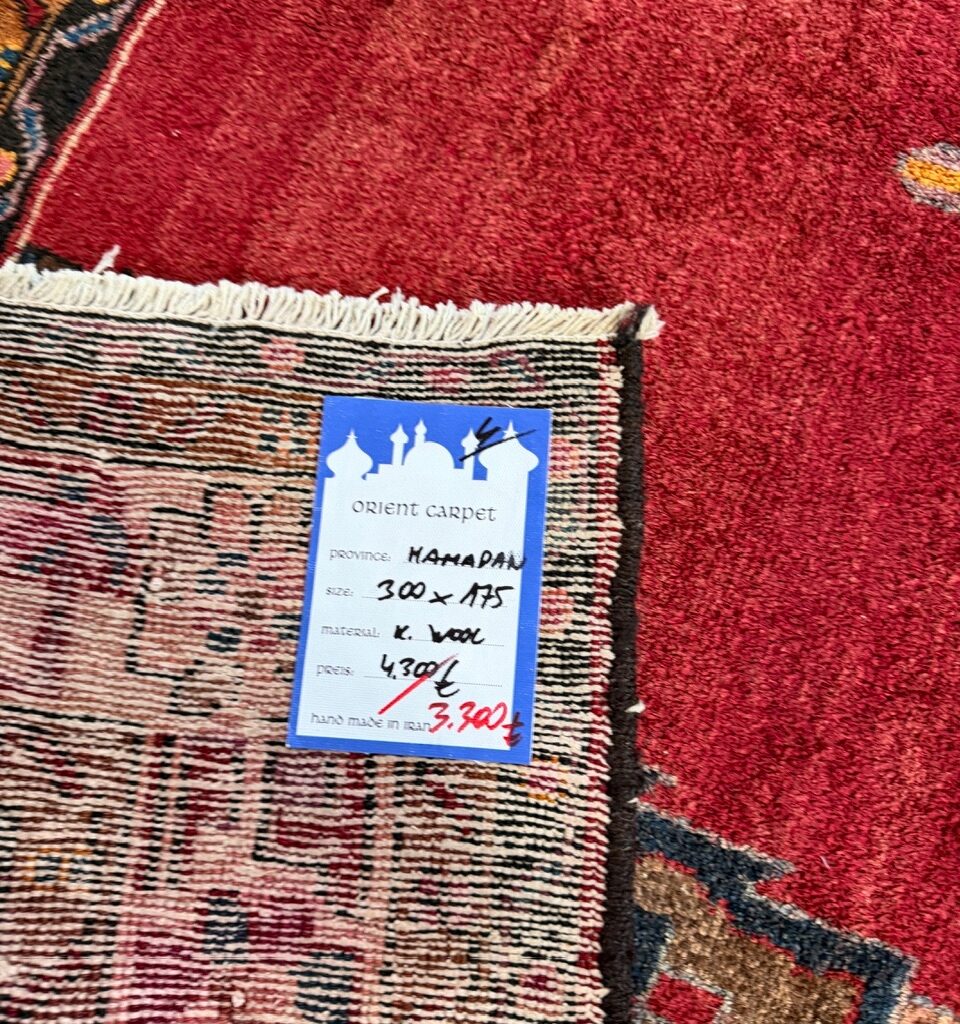 ORIENT CARPET
PROVINCE: HAMADAN
SIZE: 300 x 175
MATERIAL: K. WOOL
PREIS: 4.300
HAND MADE IN IRAN 3.300